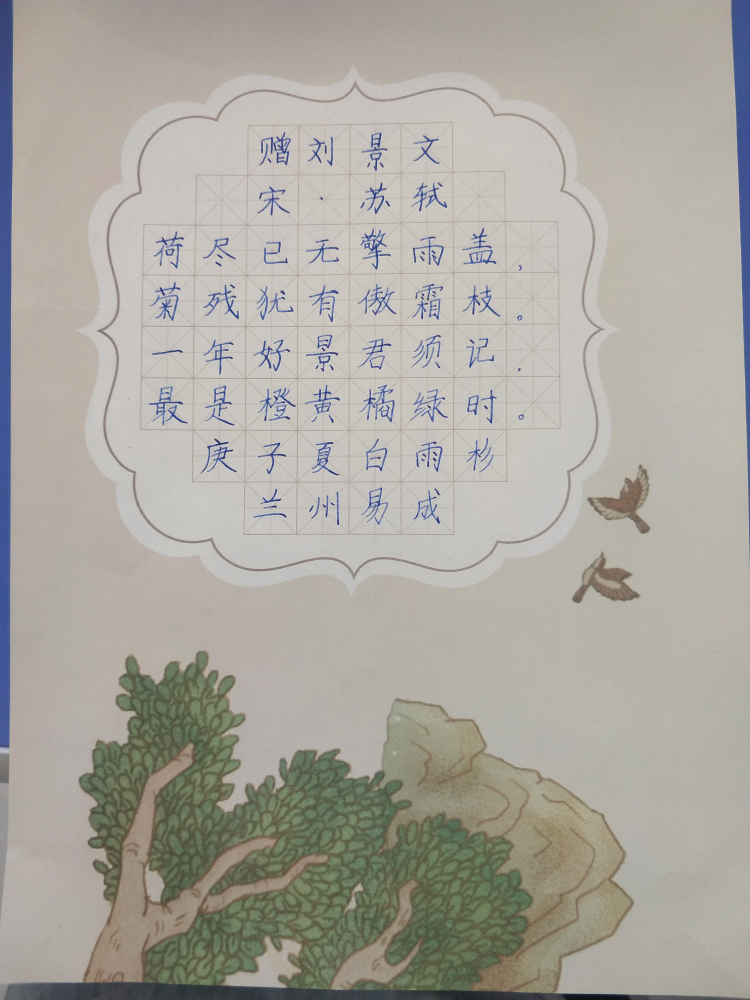 赠刘景文
宋·苏轼
荷尽已无擎雨盖，
菊残犹有傲霜枝。
一年好景君须记，
最是橙黄橘绿时。
庚子夏白雨杉
兰州易成